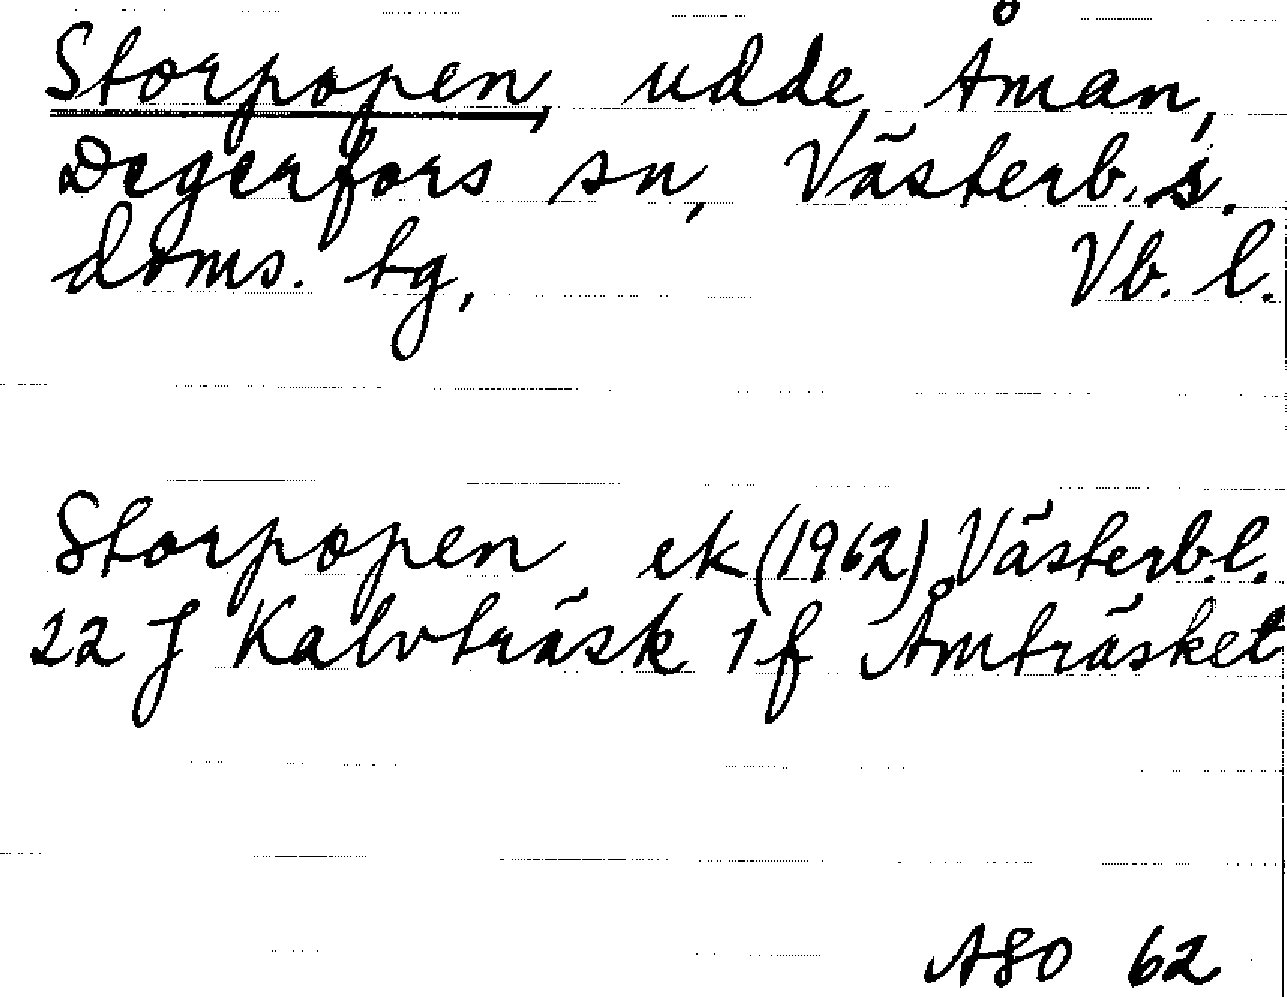 Storpopen, udde, Åman,
Degerfors sn, Västerb. s.
doms. tg, Vb. l.
Storpopen ek (1962) Västerb.l.
22 J Kalvträsk 1 f Åmträsket
ASO 62